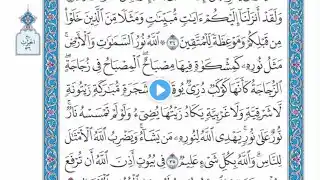 وَلَقَدْ أَنزَلْنَا إِلَيْكُمْ ءَايَٰتٍ مُّبَيِّنَٰتٍ وَمَثَلًا مِّنَ الَّذِينَ خَلَوْا۟
مِن قَبْلِكُمْ وَمَوْعِظَةً لِّلْمُتَّقِينَ ٣٤ ۞ اللَّهُ نُورُ السَّمَٰوَٰتِ وَالْأَرْضِ
مَثَلُ نُورِهِۦ كَمِشْكَوٰةٍ فِيهَا مِصْبَاحٌ الْمِصْبَاحُ فِى زُجَاجَةٍ
الزُّجَاجَةُ كَأَنَّهَا كَوْكَبٌ دُرِّىٌّ يُوقَدُ شَجَرَةٍ مُّبَٰرَكَةٍ زَيْتُونَةٍ
لَّا شَرْقِيَّةٍ وَلَا غَرْبِيَّةٍ يَكَادُ زَيْتُهَا يُضِىٓءُ وَلَوْ لَمْ تَمْسَسْهُ نَارٌ
نُّورٌ عَلَىٰ نُورٍ يَهْدِى اللَّهُ لِنُورِهِۦ مَن يَشَآءُ وَيَضْرِبُ اللَّهُ الْأَمْثَٰلَ
لِلنَّاسِ وَاللَّهُ بِكُلِّ شَىْءٍ عَلِيمٌ ٣٥ فِى بُيُوتٍ أَذِنَ اللَّهُ أَن تُرْفَعَ